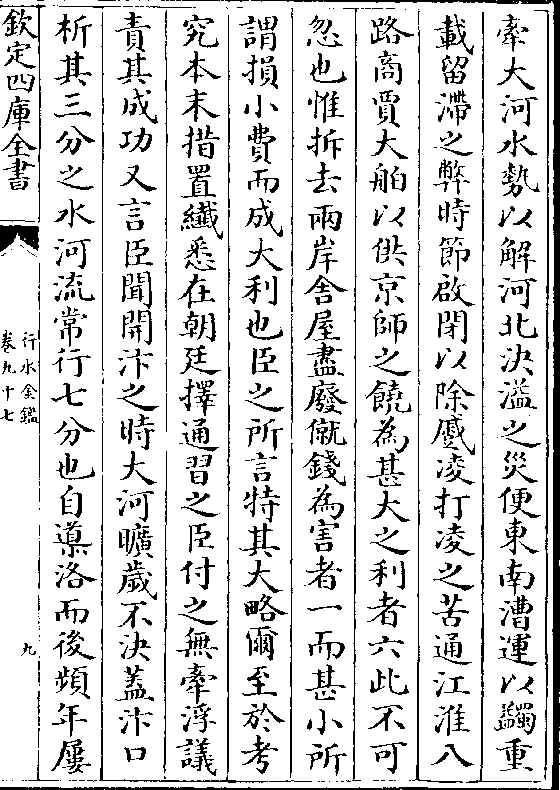 牽大河水勢以解河北決溢之災便東南漕運以蠲重
載留滯之弊時節啟閉以除蹙凌打凌之苦通江淮八
路商賈大舶以供京師之饒為甚大之利者六此不可
忽也惟拆去兩岸舍屋盡廢僦錢為害者一而甚小所
謂損小費而成大利也臣之所言特其大略爾至於考
究本末措置纖悉在朝廷擇通習之臣付之無牽浮議
責其成功又言臣聞開汴之時大河曠歲不決蓋汴口
析其三分之水河流常行七分也自導洛而後頻年屢
欽定四庫全書
行水金鑑
卷九十七
九